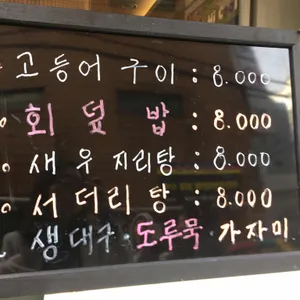 고등어 구이 : 8.000
회 덮 밥 : 8.000
새우 지리탕 : 8.000
서더리 탕 : 8.000
생대구 · 도루묵 · 가자미